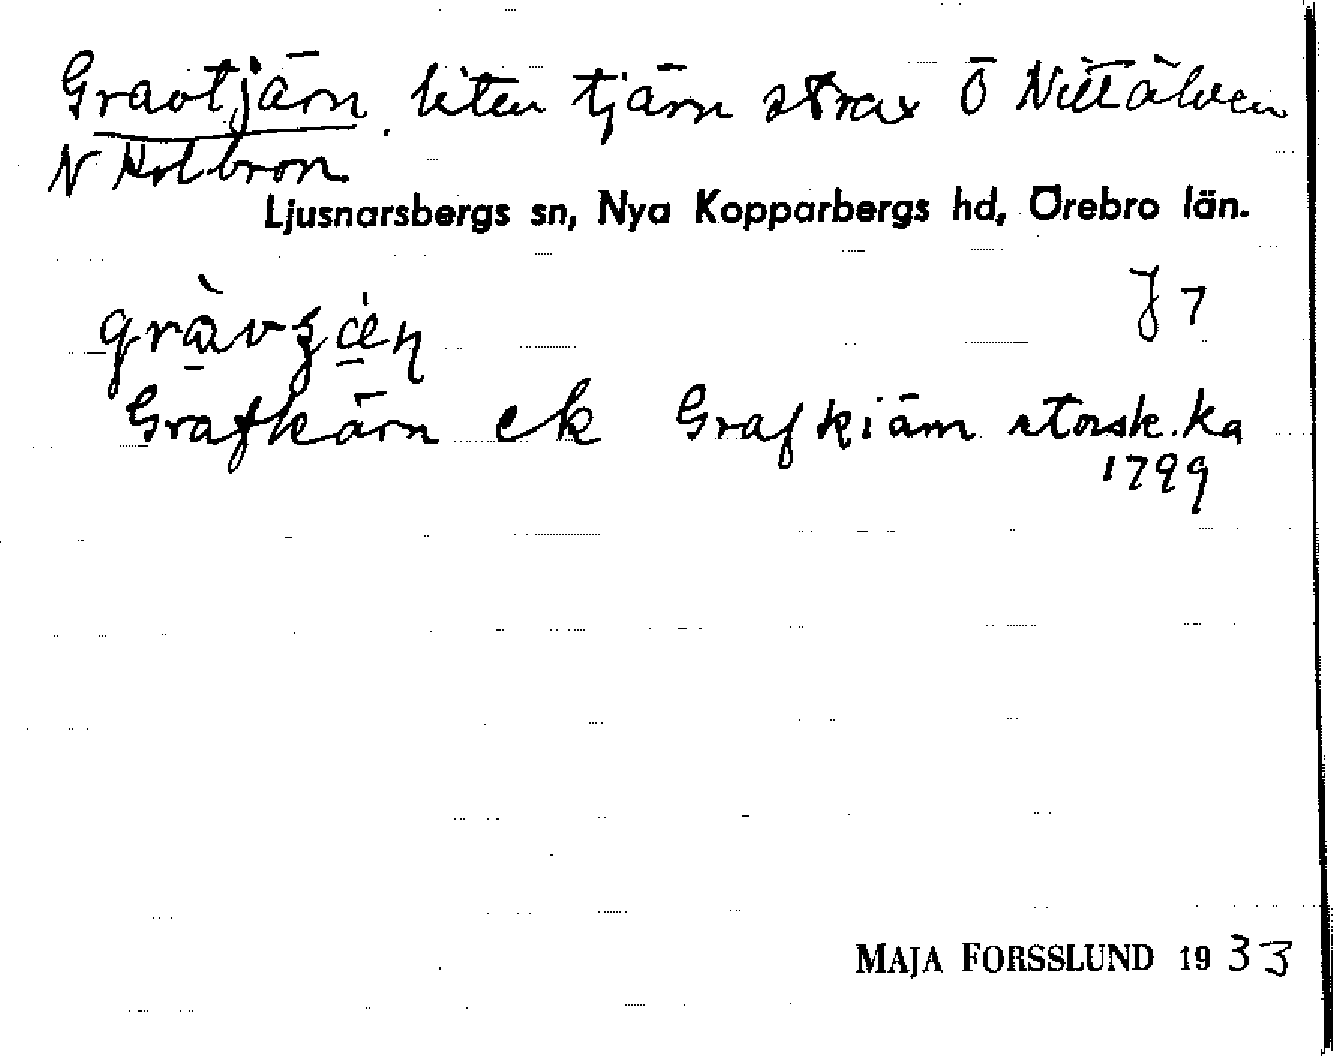 Gravtjärn. liten tjärn strax Ö Nittälven
N Holbron.
Ljusnarsbergs sn, Nya Kopparbergs hd, Örebro län.
J 7
Grafkärn ek Grafkiärn storsk.ka
1799
MAJA FORSSLUND 1933